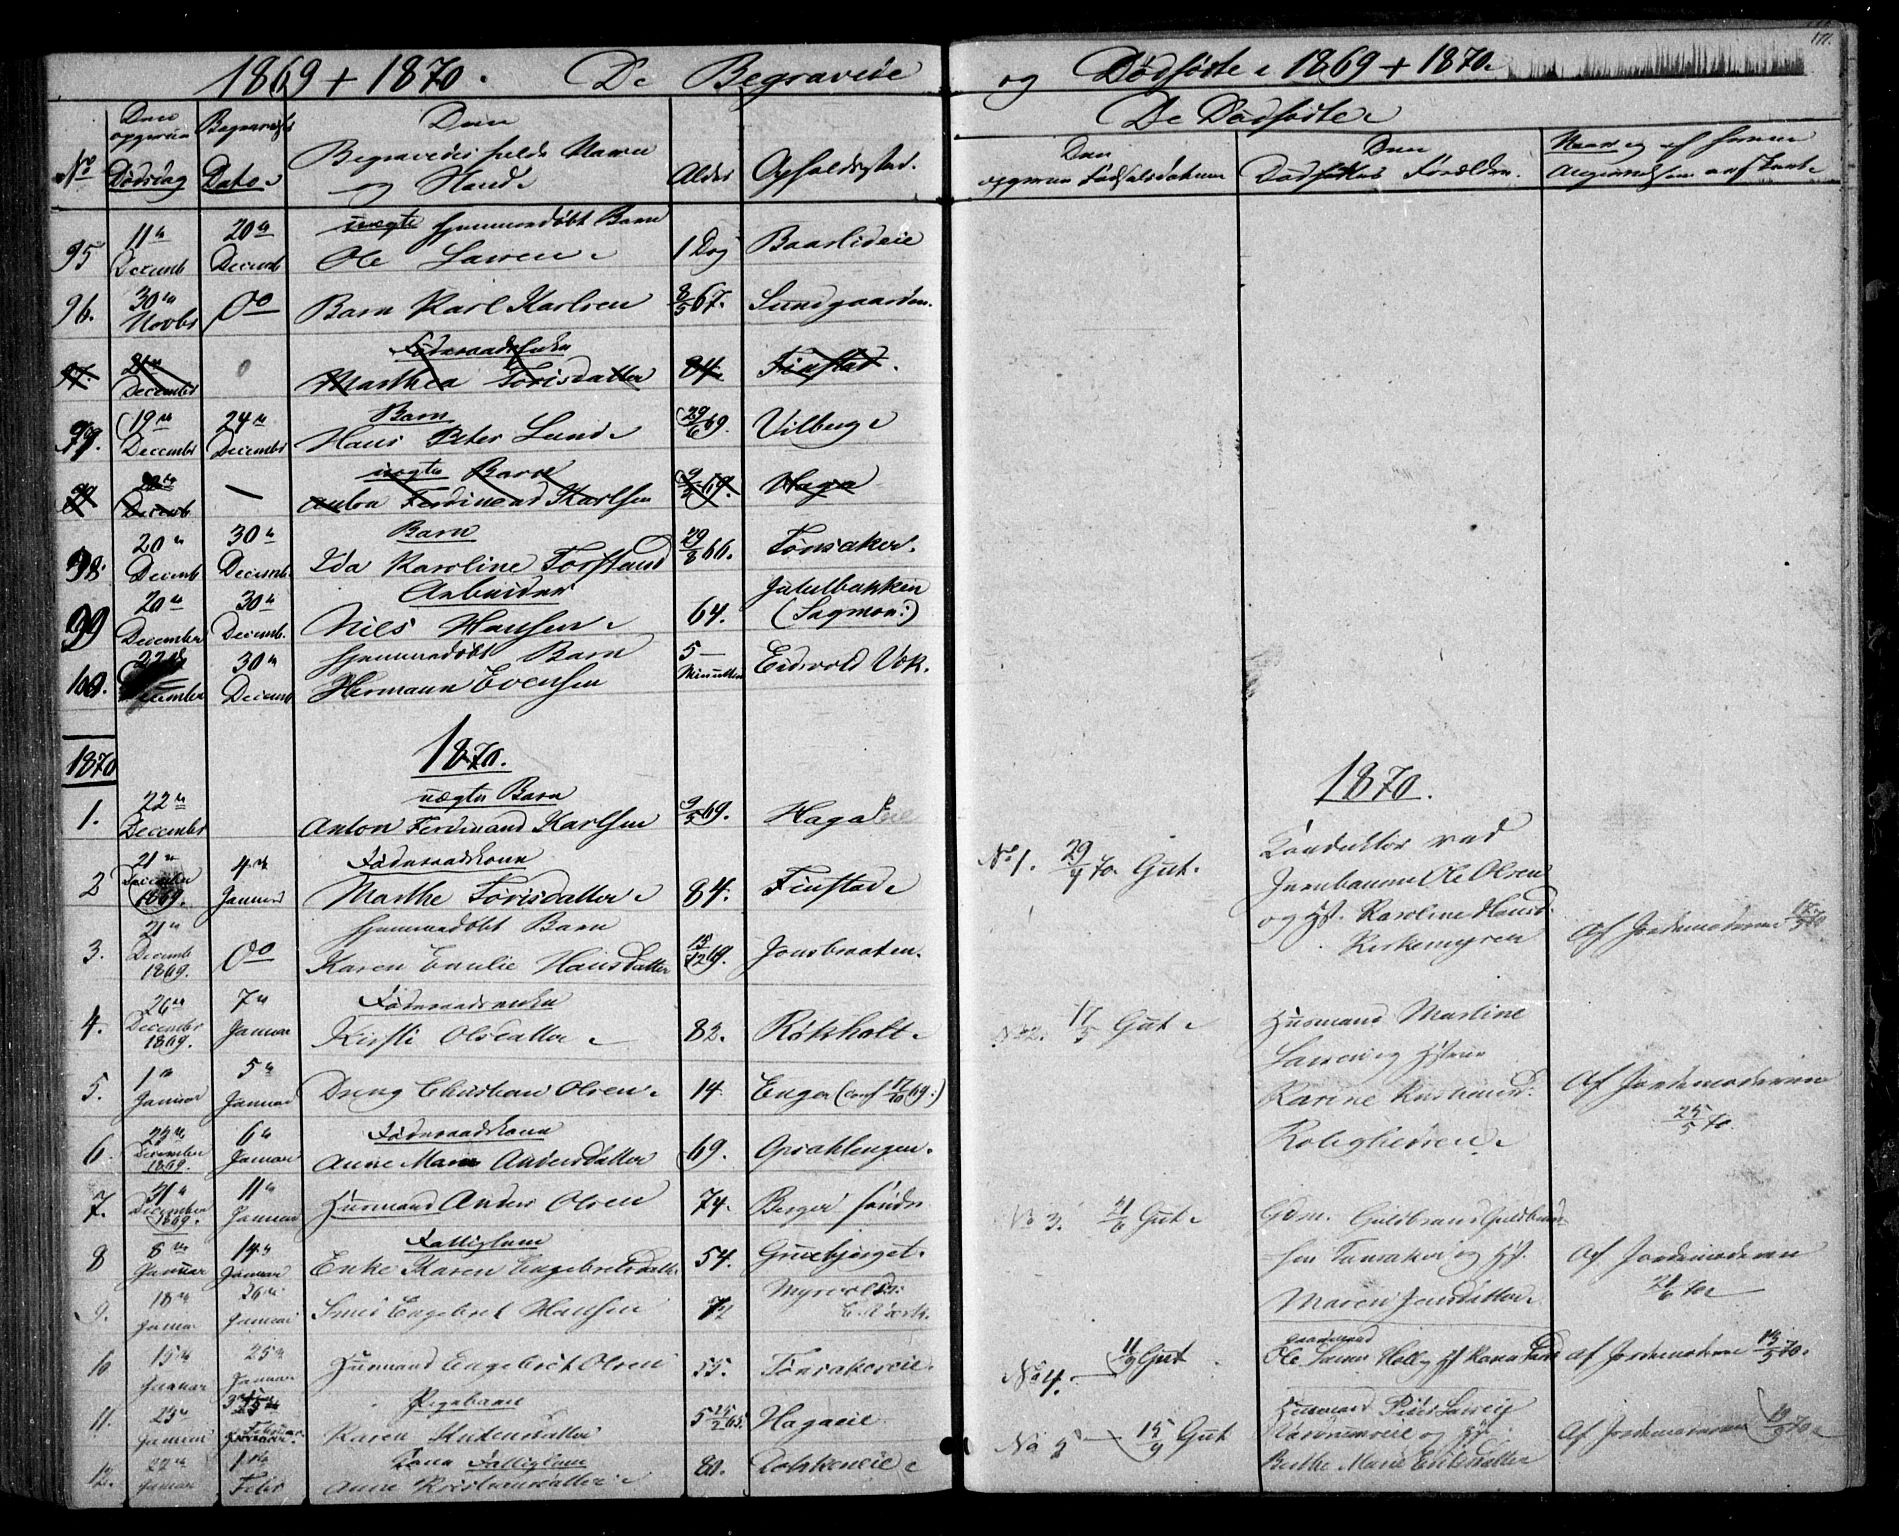 1869 + 1870. De Begravede
No
Den
Dødsdag
Begravelses
Dato
Den
Begravedes fulde Navn
og Stand
Alder
Opholdssted.
95
11te
Decemb
20de
Decemb
uægte hjemmedøbt Barn
Ole Larsen
1 Dag
Baarlideie
96.
30te
Novbr
Do
Barn Karl Karlsen
8/5 67.
Sundgaarden.
97.
21de
December
Føderaadsenke
Marthea Torisdatter
84.
Finstad.
97.
19de
December
24de
December
Barn
Hans Peter Lund
29/6 69.
Vilberg
Decemb
uægte Barn
Anton Ferdinand Karlsen
9/5 69.
Haga
98.
20de
Decemb
30te
Decemb.
Barn
Ida Karoline Torstand
29/8 66.
Tønsaker.
99
20de
December
30te
Decemb.
Arbeider
Niels Hansen
64.
Julelbakken
(Sagmoen:)
100.
22de
December
30te
Decemb
hjemmedøbt Barn
Hermann Evensen
5
Minutter
Eidsvold Værk.
1870
1870.
1.
22de
Decembr
uægte Barn
Anton Ferdinand Karlsen
9/5 69.
Haga
2
21de
December
1869.
4de
Januar
Føderaadskone
Marthe Torisdatter
84.
Finstad
3.
21de
Decemb
1869.
Do
hjemmedøbt Barn
Karen Emilie Hansdatter
15/12 69.
Jonsbraaten.
4.
26de
December
1869.
7de
Januar
Føderaadsenke
Kirsti Olsdatter
82.
Røkholt
5.
1te
Januar
5te
Januar
Dreng Christian Olsen
14.
Enger (conf 17/10 69:)
6.
23de
December
1869.
6te
Januar
Føderaadskone
Anne Marie Andersdatter
69.
Opsahlengen.
7.
31te
December
1869.
11te
Januar
Husmand Anders Olsen
74.
Berger søndre
8
8de
Januar
14de
Januar
Fattiglem
Enke Karen Engebretsdatter
54.
Gruebjerget.
9.
18de
Januar
26de
Januar
Smed Engebret Hansen
72
Myrvold
E. Værk.
10
15de
Januar
25de
Januar
Husmand Engebret Olsen
55.
Tønsakereie.
11.
23de
Januar
Februar
Pigebarn
Karen Knudsdatter
5 15/2 65.
Hagaeie
12.
22de
Januar
1te
Febr
Fattiglem
Anne Kristiansdatter
80.
og Dødfødte 1869 + 1870.
171.
De Dødfødte
Den
Fødselsdatum
Den
Dødfødtes Forældre.
Naar og af hvem
Anmeldelsen modtaget
1870.
No 1. 29/4 70. Gut.
Konduktør ved
Jernbanen Ole Olsen
og Hst. Karoline Hansd.
Kirkemyren
Af Jordemoderen 17/5 70
No 2. 17/5 Gut
Husmand Martine
Larsen og Hstrue
Karine Kristiansd.
Roligheden
Af Jordemoderen
25/5 70.
No 3. 21/6 Gut
Gdm. Guldbrand Guldbrand
sen Tønsaker og Hst.
Maren Jensdatter
Af Jordemoderen
21/6 70
No 4. 11/9 Gut
Gaardmand
Ole Larsen Holt og Hst Karen Larsd
Af Jordemoderen
No 5 15/9 Gut
Husmand Peder Larsen
og Hst
Berthe Marie Eriksdatter
Af Jordemoderen 19/9 70